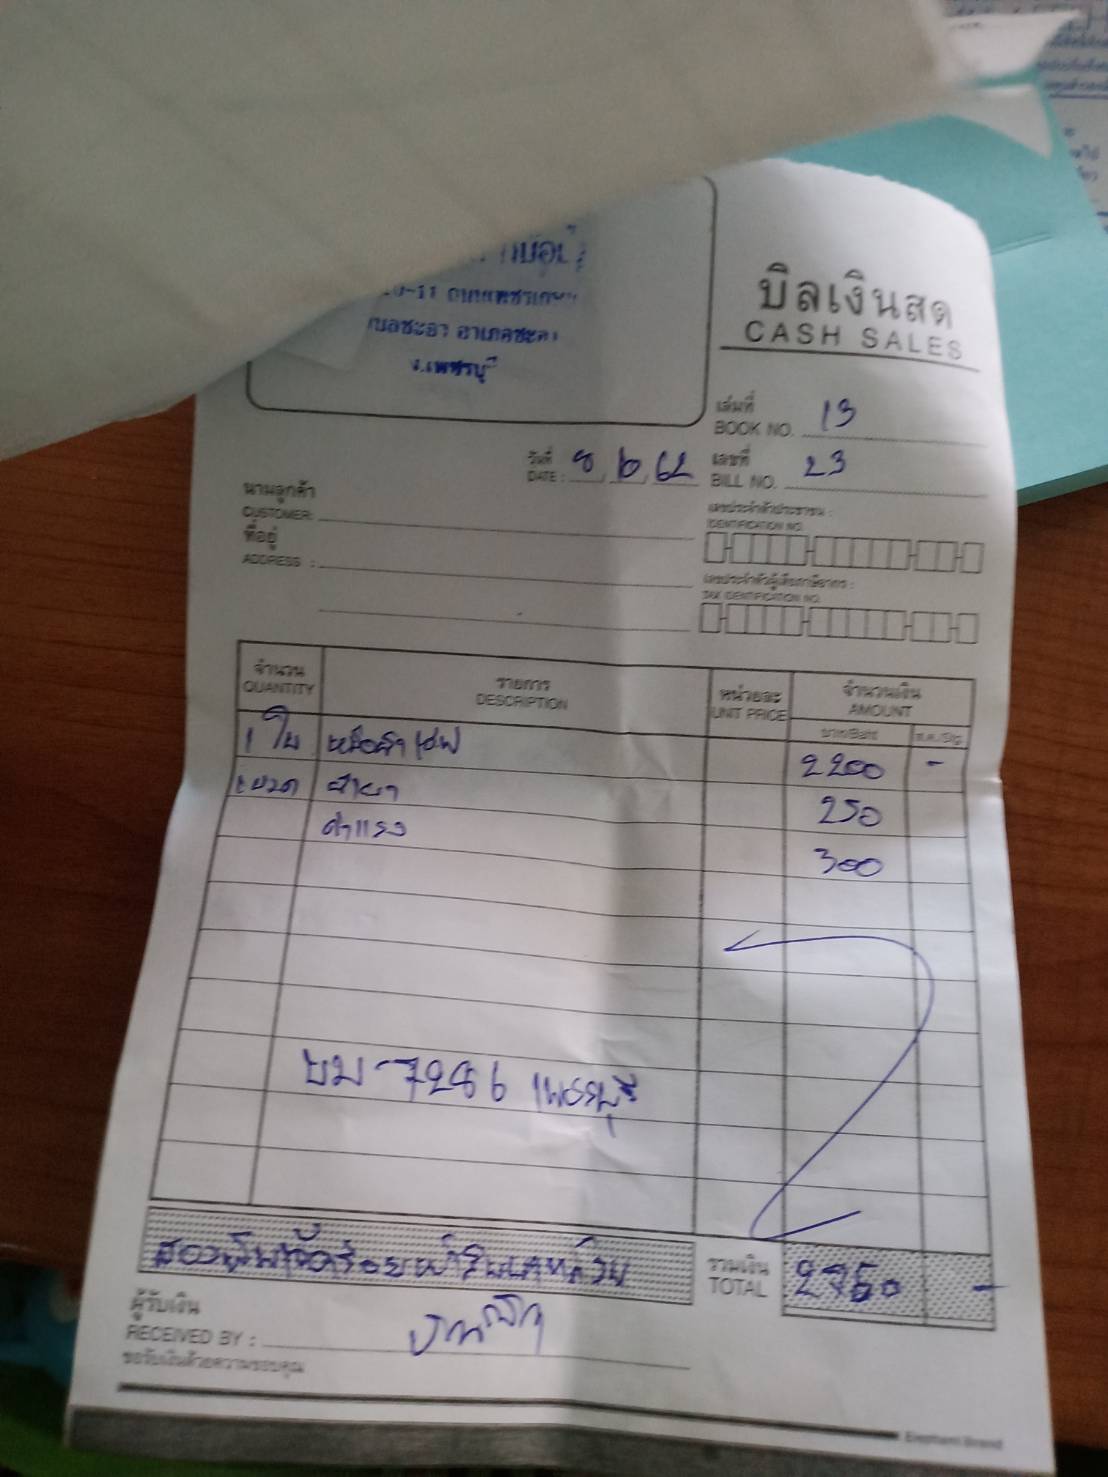 บิลเงินสด
CASH SALES
ถนนเพชรเกษม
อำเภอชะอำ
จ.เพชรบุรี
เล่มที่
BOOK NO. 13
วันที่
DATE : 8 / 6 / 62
เลขที่
BILL NO. 23
นามลูกค้า
CUSTOMER:
ที่อยู่
ADDRESS :
เลขประจำตัวประชาชน :
IDENTIFICATION NO.
เลขประจำตัวผู้เสียภาษีอากร :
TAX IDENTIFICATION NO.
จำนวน รายการ หน่วยละ จำนวนเงิน
QUANTITY DESCRIPTION UNIT PRICE AMOUNT
บาท/Baht ส.ต./Stg.
1 ใบ 2200 -
250
ค่าแรง 300
บม-7286 เพชรบุรี
สองพันเจ็ดร้อยห้าสิบบาทถ้วน
รวมเงิน
TOTAL 2750 -
ผู้รับเงิน
RECEIVED BY :
ขอรับเงินด้วยความขอบคุณ
Elephant Brand